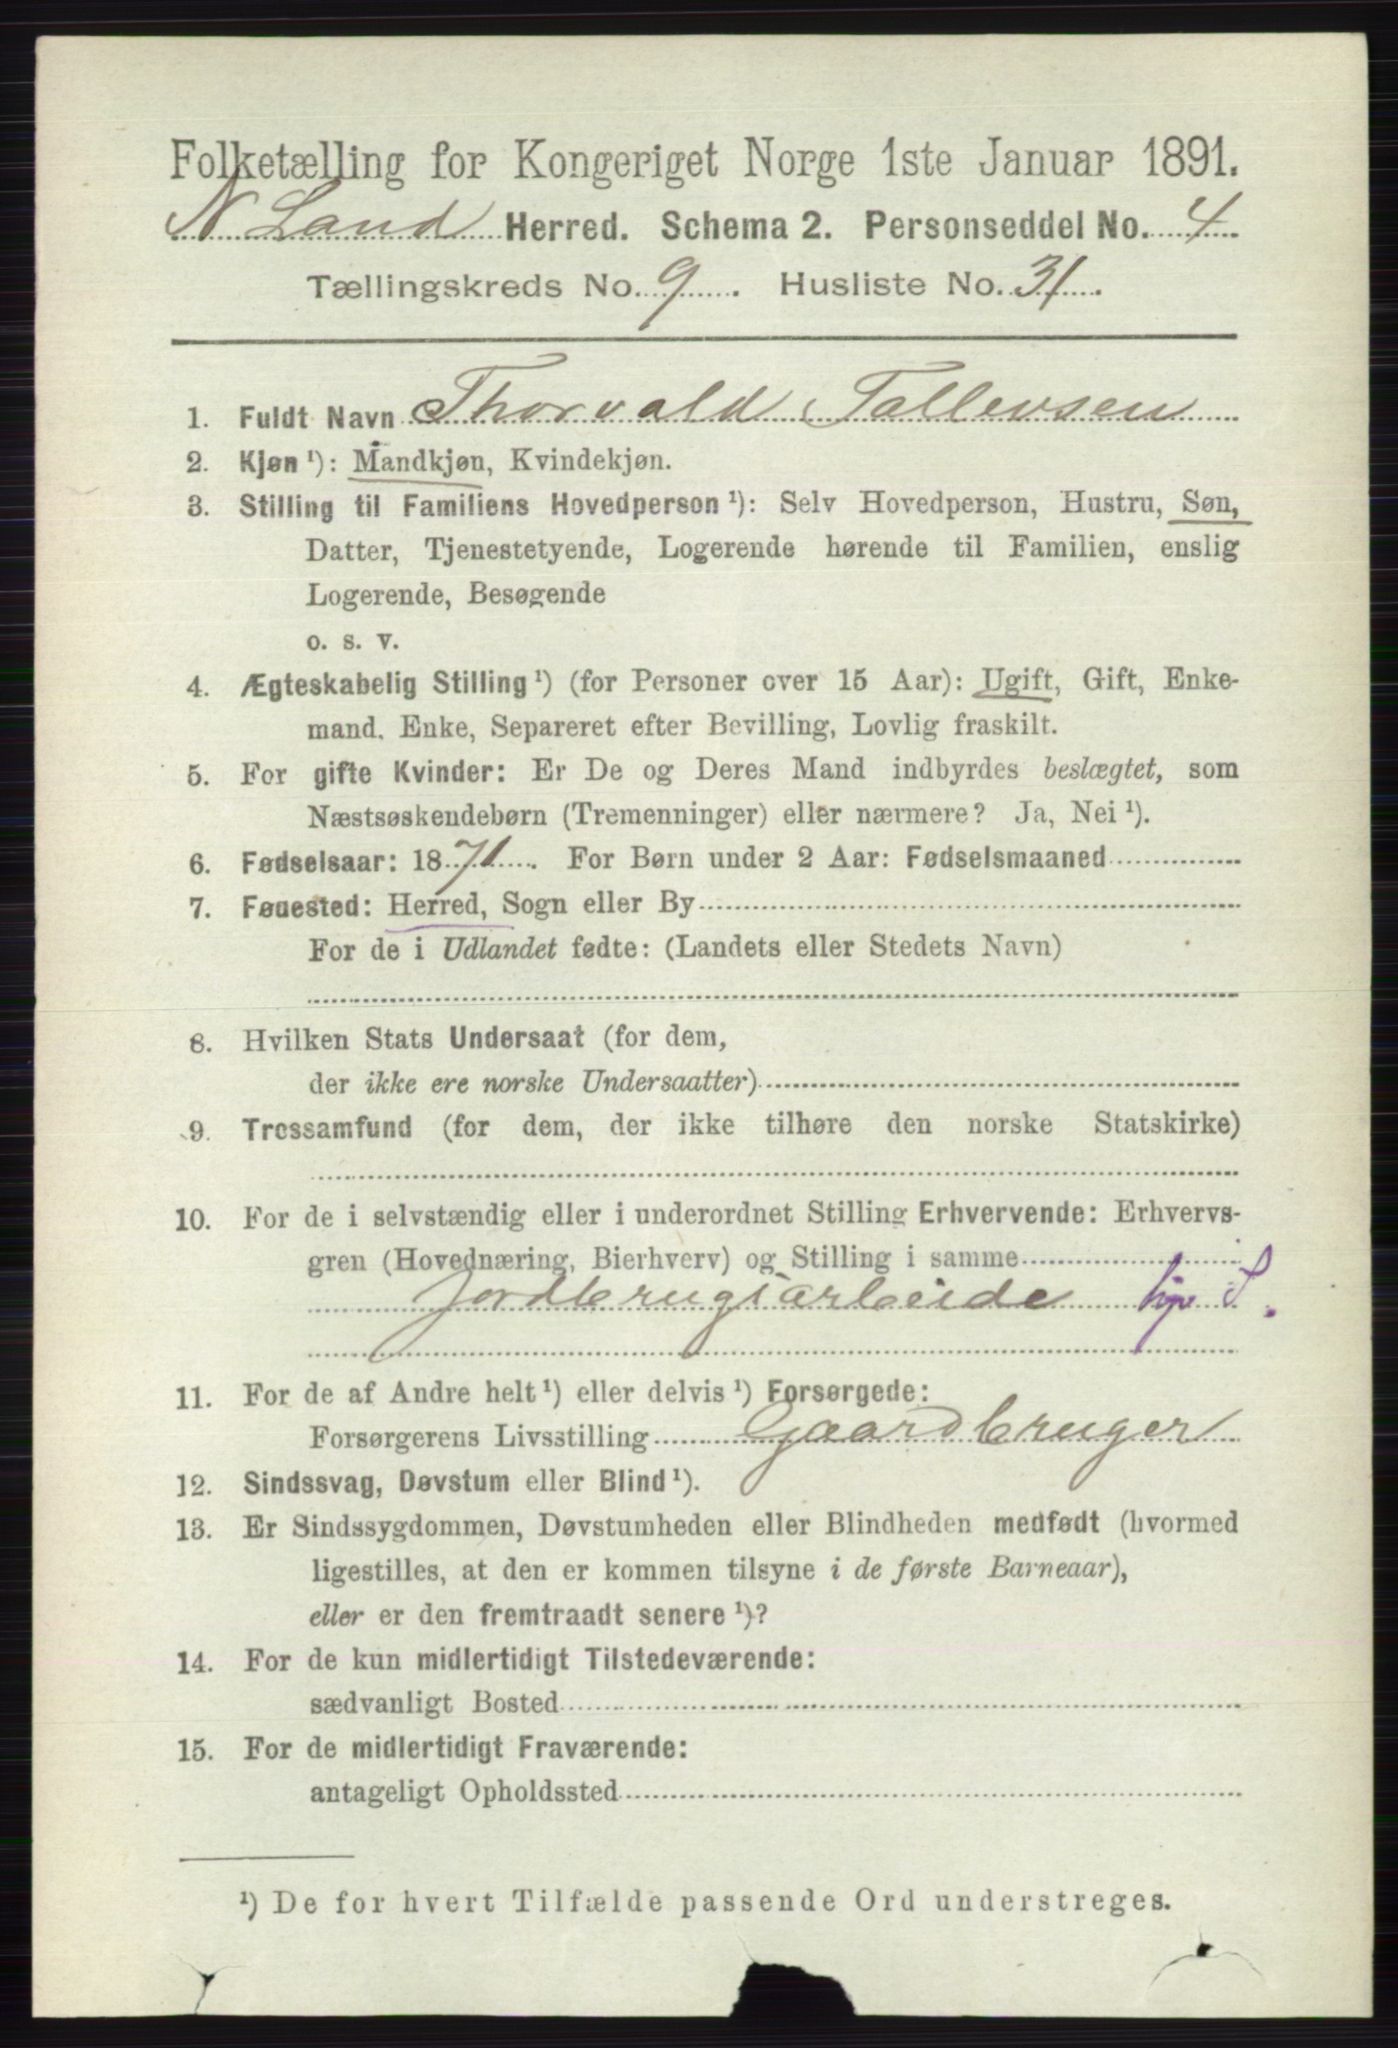 Folketælling for Kongeriget Norge 1ste Januar 1891.
N Land Herred. Schema 2. Personseddel No. 4
Tællingskreds No. 9. Husliste No. 31.
1. Fuldt Navn Thorvald Tollevsen
2. Kjøn ¹): Mandkjøn, Kvindekjøn.
3. Stilling til Familiens Hovedperson ¹): Selv Hovedperson, Hustru, Søn,
Datter, Tjenestetyende, Logerende hørende til Familien, enslig
Logerende, Besøgende
o. s. v.
4. Ægteskabelig Stilling ¹) (for Personer over 15 Aar): Ugift, Gift, Enke-
mand, Enke, Separeret efter Bevilling, Lovlig fraskilt.
5. For gifte Kvinder: Er De og Deres Mand indbyrdes beslægtet, som
Næstsøskendebørn (Tremenninger) eller nærmere? Ja, Nei ¹).
6. Fødselsaar: 1871. For Børn under 2 Aar: Fødselsmaaned
7. Føuested: Herred, Sogn eller By
For de i Udlandet fødte: (Landets eller Stedets Navn)
8. Hvilken Stats Undersaat (for dem,
der ikke ere norske Undersaatter)
9. Trossamfund (for dem, der ikke tilhøre den norske Statskirke)
10. For de i selvstændig eller i underordnet Stilling Erhvervende: Erhvervs-
gren (Hovednæring, Bierhverv) og Stilling i samme
Jordbrugsarbeide
11. For de af Andre helt ¹) eller delvis ¹) Forsørgede:
Forsørgerens Livsstilling Gaardbruger
12. Sindssvag, Døvstum eller Blind ¹).
13. Er Sindssygdommen, Døvstumheden eller Blindheden medfødt (hvormed
ligestilles, at den er kommen tilsyne i de første Barneaar),
eller er den fremtraadt senere ¹)?
14. For de kun midlertidigt Tilstedeværende:
sædvanligt Bosted
15. For de midlertidigt Fraværende:
antageligt Opholdssted
¹) De for hvert Tilfælde passende Ord understreges.